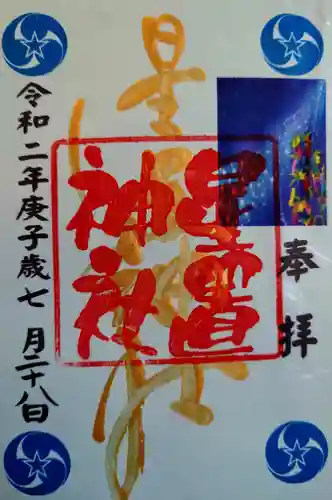 奉拝
星
星置
神社
令和二年庚子歳七月二十八日